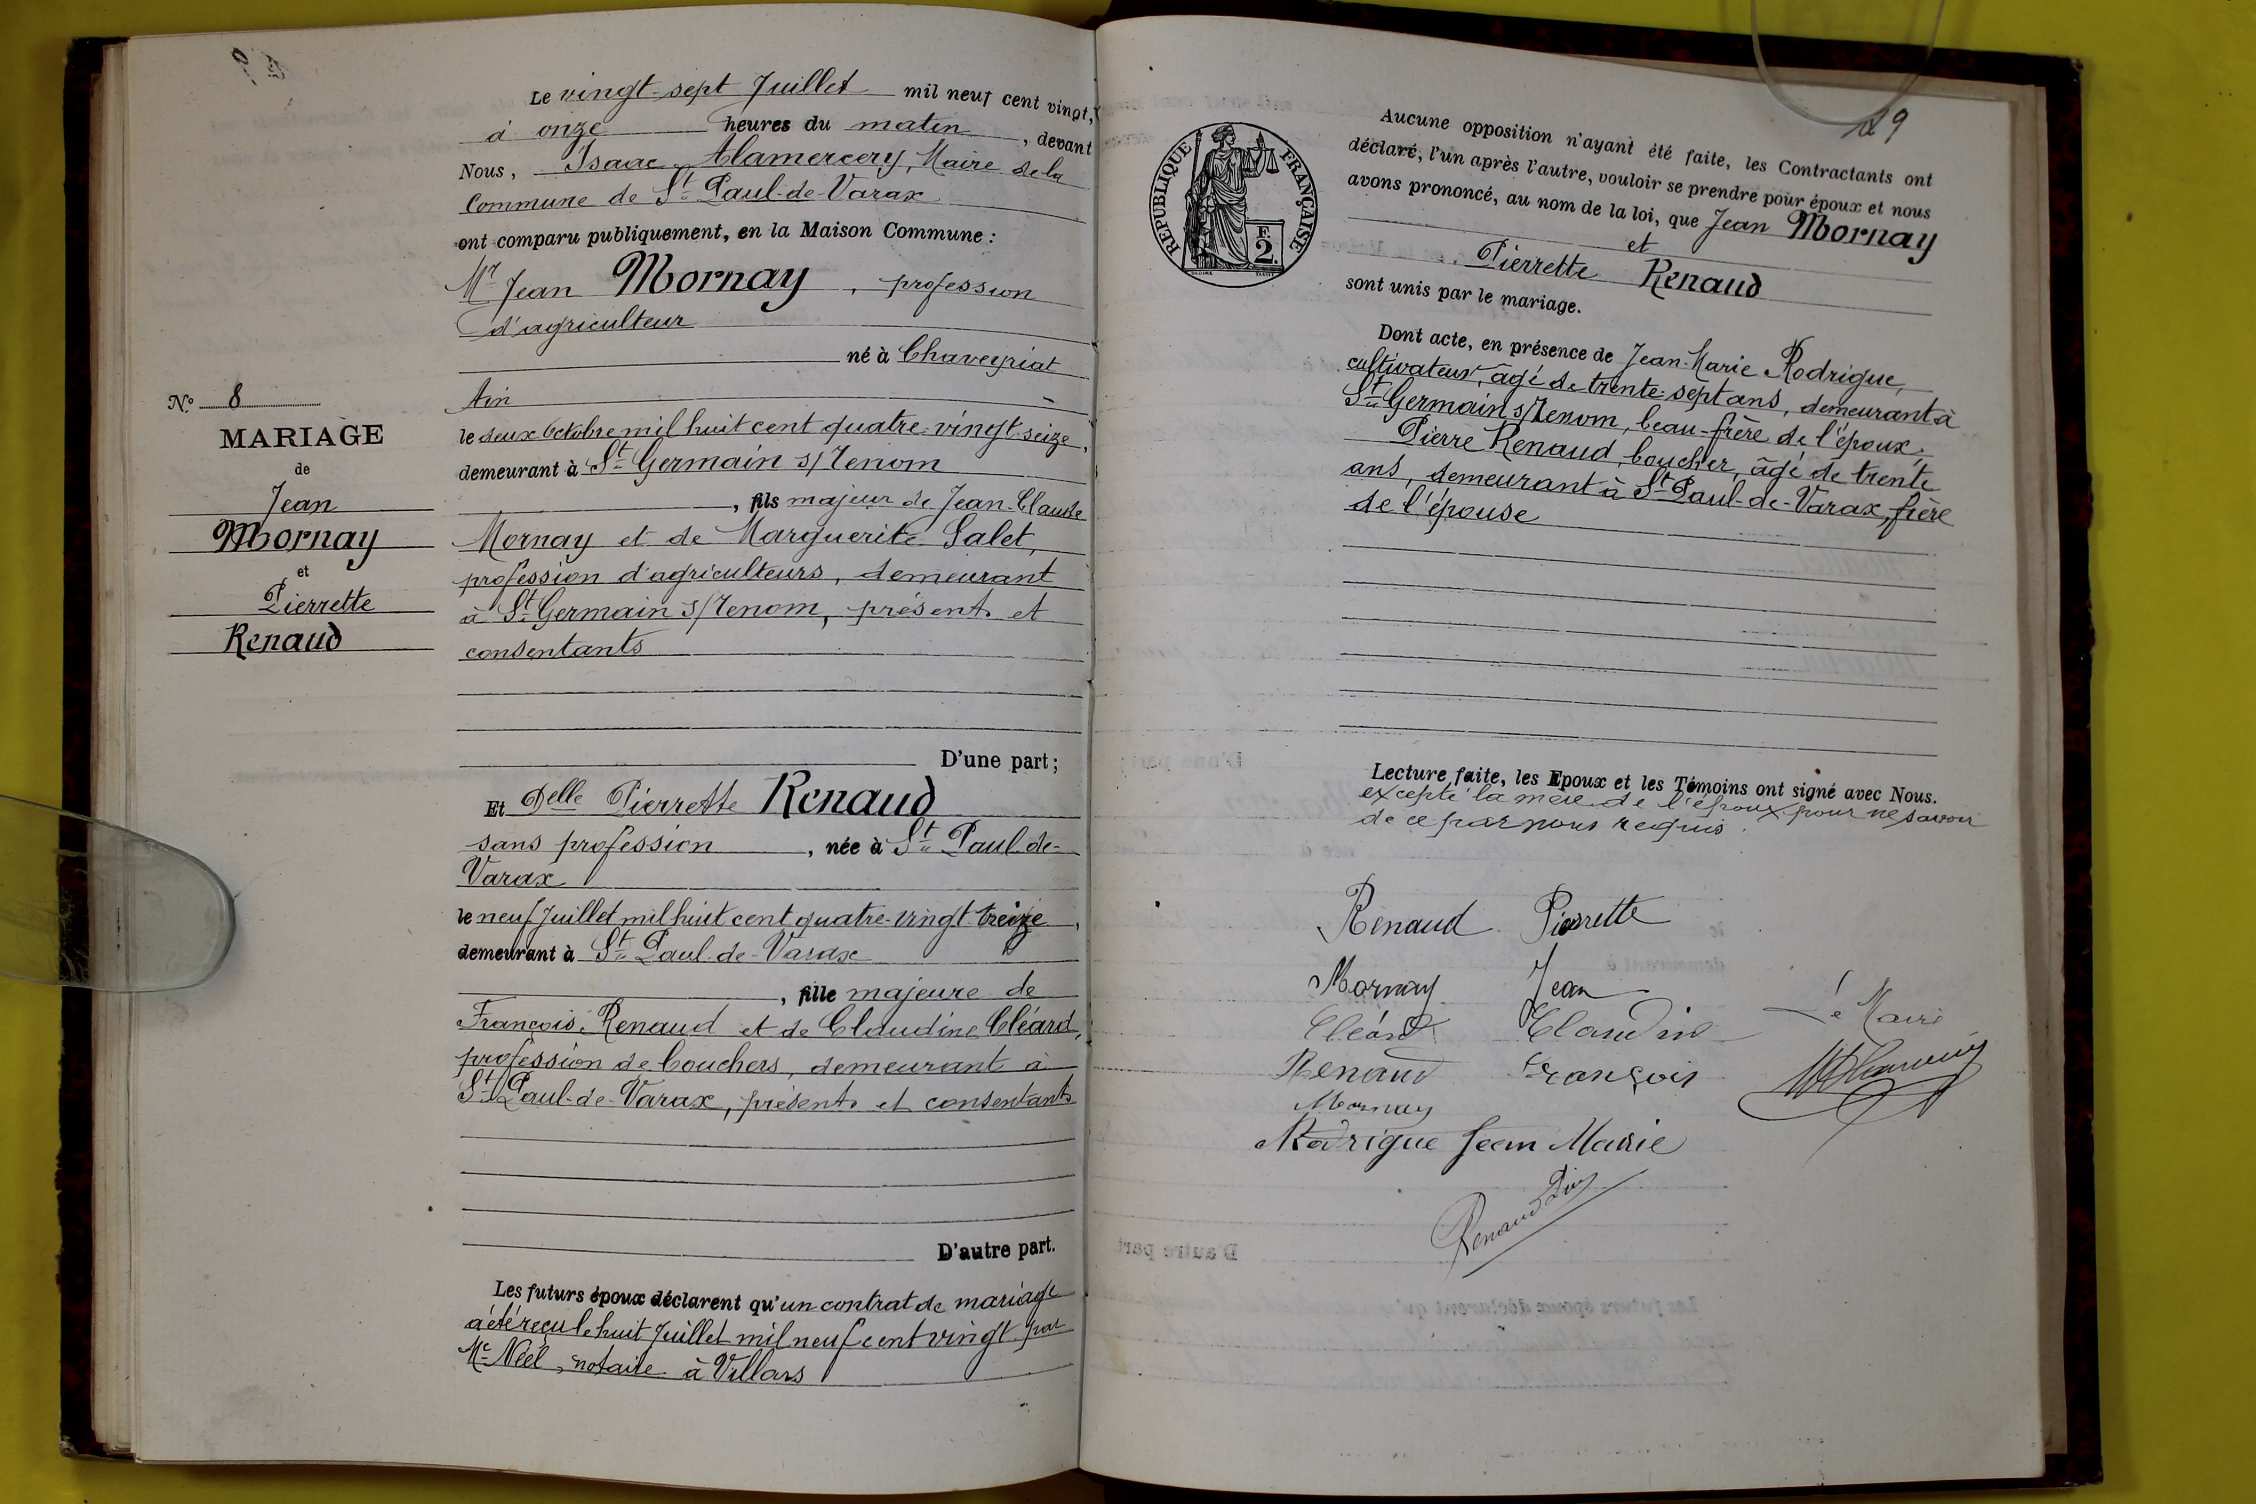 Le vingt-sept Juillet mil neuf cent vingt,
à onze heures du matin, devant
Nous, Isaac Alamercery, Maire de la
Commune de St Paul-de-Varax
ont comparu publiquement, en la Maison Commune :
Mr Jean Mornay, profession
d'agriculteur
né à Chaveyriat
Ain
le deux Octobre mil huit cent quatre-vingt-seize,
demeurant à St Germain s/Renom
, fils majeur de Jean-Claude
Mornay et de Marguerite Salet,
profession d'agriculteurs, demeurant
à St Germain s/Renom, présents et
consentants
D'une part ;
No 8
MARIAGE
de
Jean
Mornay
et
Pierrette
Renaud
Et Delle Pierrette Renaud
sans profession, née à St Paul-de-
Varax
le neuf Juillet mil huit cent quatre-vingt-treize,
demeurant à St Paul-de-Varax
, fille majeure de
François Renaud et de Claudine Cléard,
profession de bouchers, demeurant à
St Paul-de-Varax, présents et consentants
D'autre part.
Les futurs époux déclarent qu'un contrat de mariage
a été reçu le huit Juillet mil neuf cent vingt par
Me Néel, notaire à Villars
19
REPUBLIQUE FRANÇAISE
F.
2.
Aucune opposition n'ayant été faite, les Contractants ont
déclaré, l'un après l'autre, vouloir se prendre pour époux et nous
avons prononcé, au nom de la loi, que Jean Mornay
et
Pierrette Renaud
sont unis par le mariage.
Dont acte, en présence de Jean-Marie Rodrigue,
cultivateur, âgé de trente-sept ans, demeurant à
St Germain s/Renom, beau-frère de l'époux,
Pierre Renaud, boucher, âgé de trente
ans, demeurant à St Paul-de-Varax, frère
de l'épouse
Lecture faite, les Epoux et les Témoins ont signé avec Nous.
excepté la mère de l'époux pour ne savoir
de ce par nous requis.
Renaud Pierrette
Mornay Jean
Cléard Claudine
Le Maire
Renaud François
Mornay
Rodrigue Jean Marie
Renaud